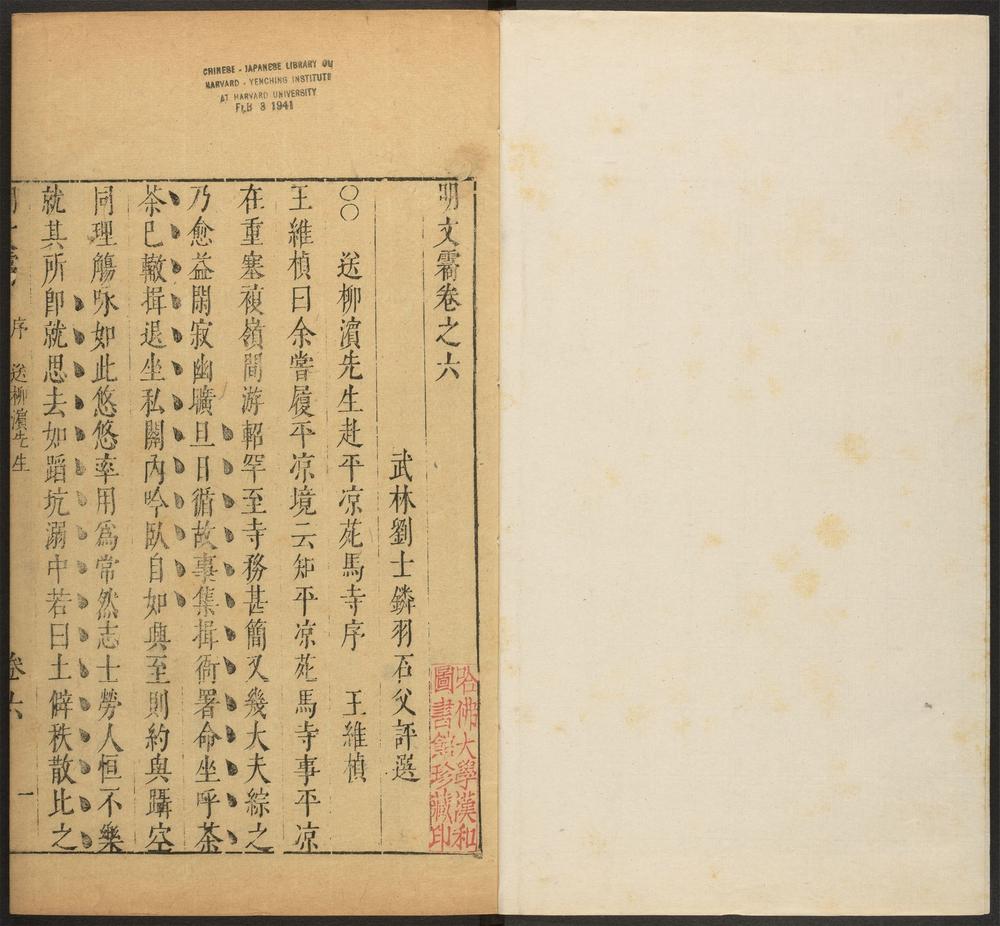 CHINESE - JAPANESE LIBRARY OF
HARVARD - YENCHING INSTITUTE
AT HARVARD UNIVERSITY
FEB 3 1941
明文霱卷之六
武林劉士鏻羽石父評選
哈佛大學漢和
圖書館珍藏印
○○　送柳濵先生赴平凉苑馬寺序　王維楨
王維楨曰余嘗履平凉境云知平凉苑馬寺事平凉
在重塞複嶺間游軺罕至寺務甚簡又幾大夫綜之
乃愈益閑寂幽曠旦日循故事集揖衙署命坐呼茶
茶已輙揖退坐私闢内吟臥自如興至則約與躡空
同理觴咏如此悠悠率用爲常然志士勞人恒不樂
就其所卽就思去如蹈坑溺中若曰土僻秩散比之
序　送柳濵先生　卷六　一